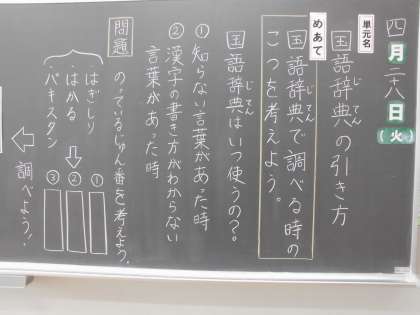 四月二十八日(火)
単元名
国語辞典の引き方
じてん
めあて
国語辞典で調べる時の
じてん
こつを考えよう。
国語辞典はいつ使うの?。
じてん
①知らない言葉があった時
②漢字の書き方がわからない
言葉があった時
問題
のっているじゅん番を考えよう。
はぎしり
はかる
パキスタン
①
②
③
調べよう!